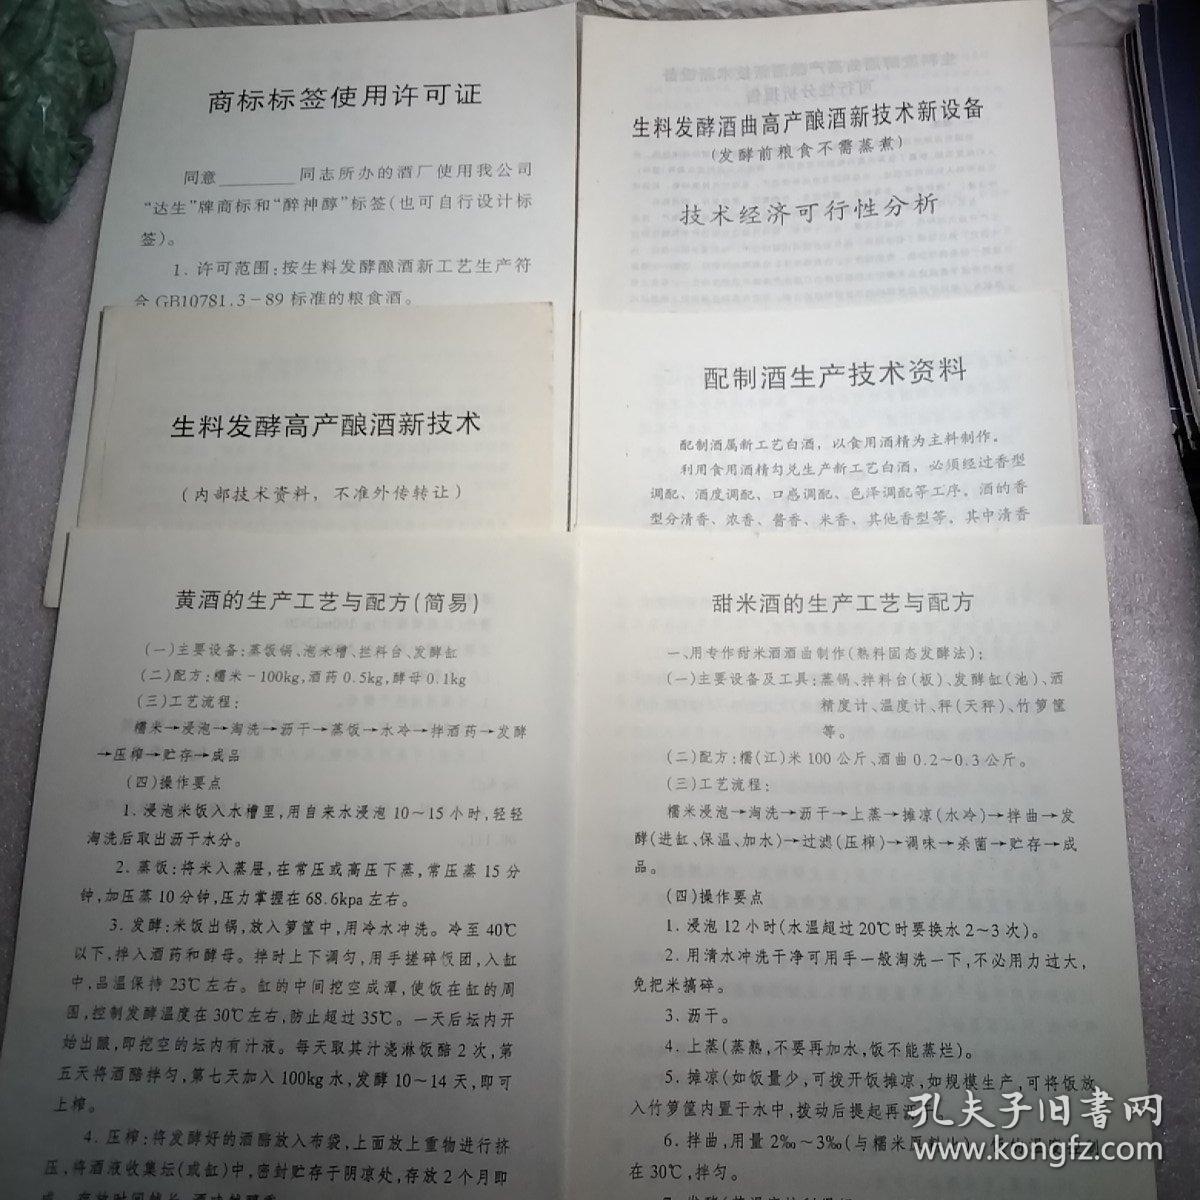 商标标签使用许可证
同意________同志所办的酒厂使用我公司
“达生”牌商标和“醉神醇”标签(也可自行设计标
签)。
1. 许可范围:按生料发酵酿酒新工艺生产符
合 GB10781.3-89 标准的粮食酒。
生料发酵酒曲高产酿酒新技术新设备
(发酵前粮食不需蒸煮)
技术经济可行性分析
生料发酵高产酿酒新技术
(内部技术资料，不准外传转让)
配制酒生产技术资料
配制酒属新工艺白酒，以食用酒精为主料制作。
利用食用酒精勾兑生产新工艺白酒，必须经过香型
调配、酒度调配、口感调配、色泽调配等工序。酒的香
型分清香、浓香、酱香、米香、其他香型等。其中清香
黄酒的生产工艺与配方(简易)
(一)主要设备:蒸饭锅、泡米槽、拦料台、发酵缸
(二)配方:糯米-100kg,酒药0.5kg,酵母0.1kg
(三)工艺流程:
糯米→浸泡→淘洗→沥干→蒸饭→水冷→拌酒药→发酵
→压榨→贮存→成品
(四)操作要点
1. 浸泡米饭入水槽里,用自来水浸泡 10～15 小时,轻轻
淘洗后取出沥干水分。
2. 蒸饭:将米入蒸屉,在常压或高压下蒸,常压蒸 15 分
钟,加压蒸 10 分钟,压力掌握在 68.6kpa 左右。
3. 发酵:米饭出锅,放入箩筐中,用冷水冲洗。冷至 40℃
以下,拌入酒药和酵母。拌时上下调匀,用手搓碎饭团,入缸
中,品温保持 23℃左右。缸的中间挖空成潭,使饭在缸的周
围,控制发酵温度在30℃左右,防止超过35℃。一天后坛内开
始出酿,即挖空的坛内有汁液。每天取其汁浇淋饭醅 2 次,第
五天将酒醅拌匀,第七天加入 100kg 水,发酵 10～14 天,即可
上榨。
4. 压榨:将发酵好的酒醅放入布袋,上面放上重物进行挤
压,将酒液收集坛(或缸)中,密封贮存于阴凉处,存放 2 个月即
甜米酒的生产工艺与配方
一、用专作甜米酒酒曲制作(熟料固态发酵法):
(一)主要设备及工具:蒸锅、拌料台(板)、发酵缸(池)、洒
精度计、温度计、秤(天秤)、竹箩筐
等。
(二)配方:糯(江)米 100 公斤、酒曲 0.2～0.3 公斤。
(三)工艺流程:
糯米浸泡→淘洗→沥干→上蒸→摊凉(水冷)→拌曲→发
酵(进缸、保温、加水)→过滤(压榨)→调味→杀菌→贮存→成
品。
(四)操作要点
1. 浸泡 12 小时(水温超过 20℃时要换水 2～3 次)。
2. 用清水冲洗干净可用手一般淘洗一下,不必用力过大,
免把米搞碎。
3. 沥干。
4. 上蒸(蒸熟,不要再加水,饭不能蒸烂)。
5. 摊凉(如饭量少,可拨开饭摊凉,如规模生产,可将饭放
入竹箩筐内置于水中,拨动后提起再沥干。
6. 拌曲,用量 2‰～3‰(与糯米原料
在 30℃,拌匀。
孔夫子旧书网
www.kongfz.com